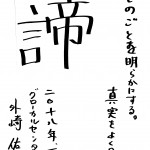 ものごとを明らかにする。
真実をよく
諦
二〇十八年、
グローカルセンタ
外崎 佑